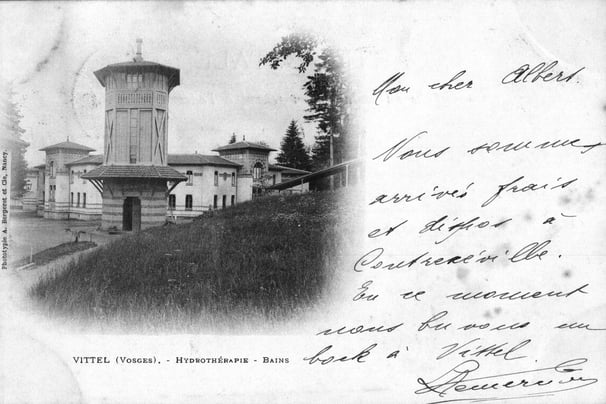 Mon cher Albert.
Nous sommes
arrivés frais
et dispos à
Contrexéville.
En ce moment
nous buvons un
bock à Vittel
Phototypie A. Bergeret et Cie, Nancy.
VITTEL (VOSGES). - HYDROTHÉRAPIE - BAINS